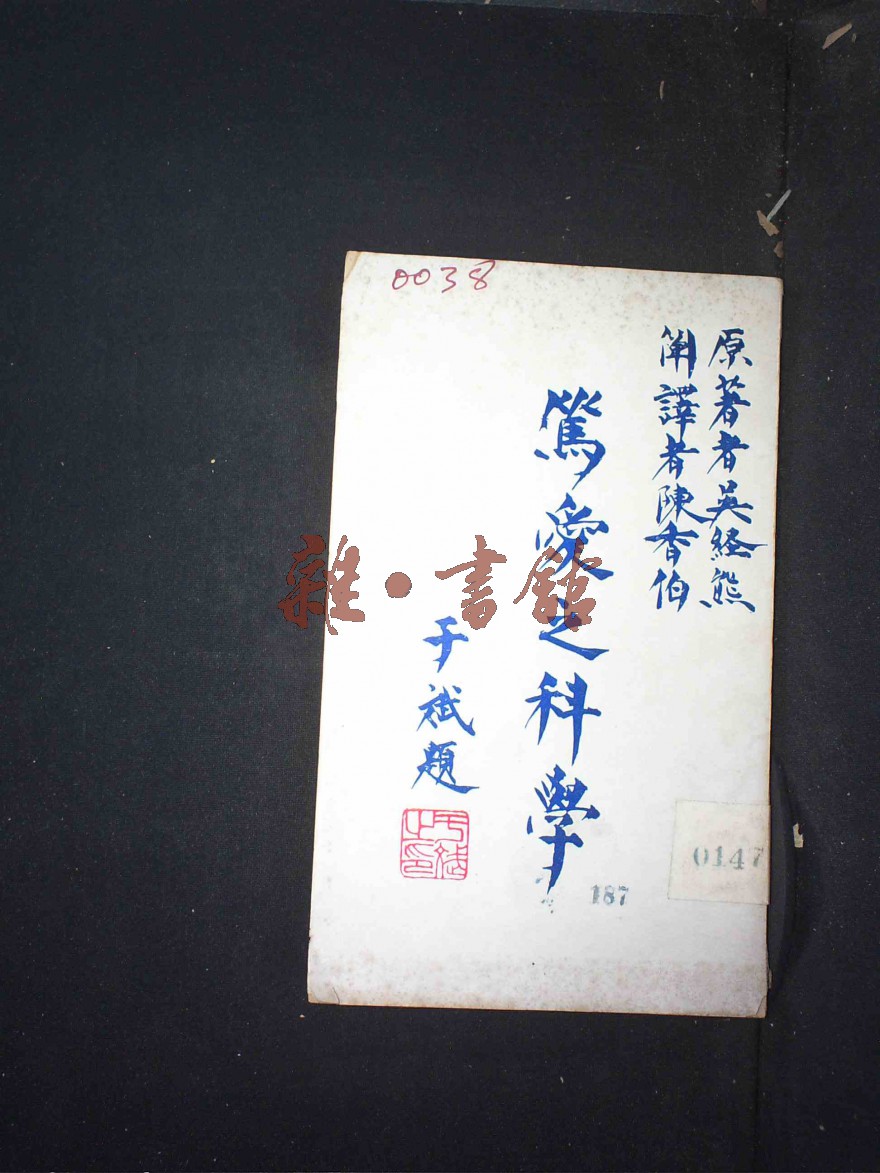 0038
原著者吳經熊
簡譯者陳香伯
篤愛之科學
于斌題
于斌之印
0147
187
雜·書館